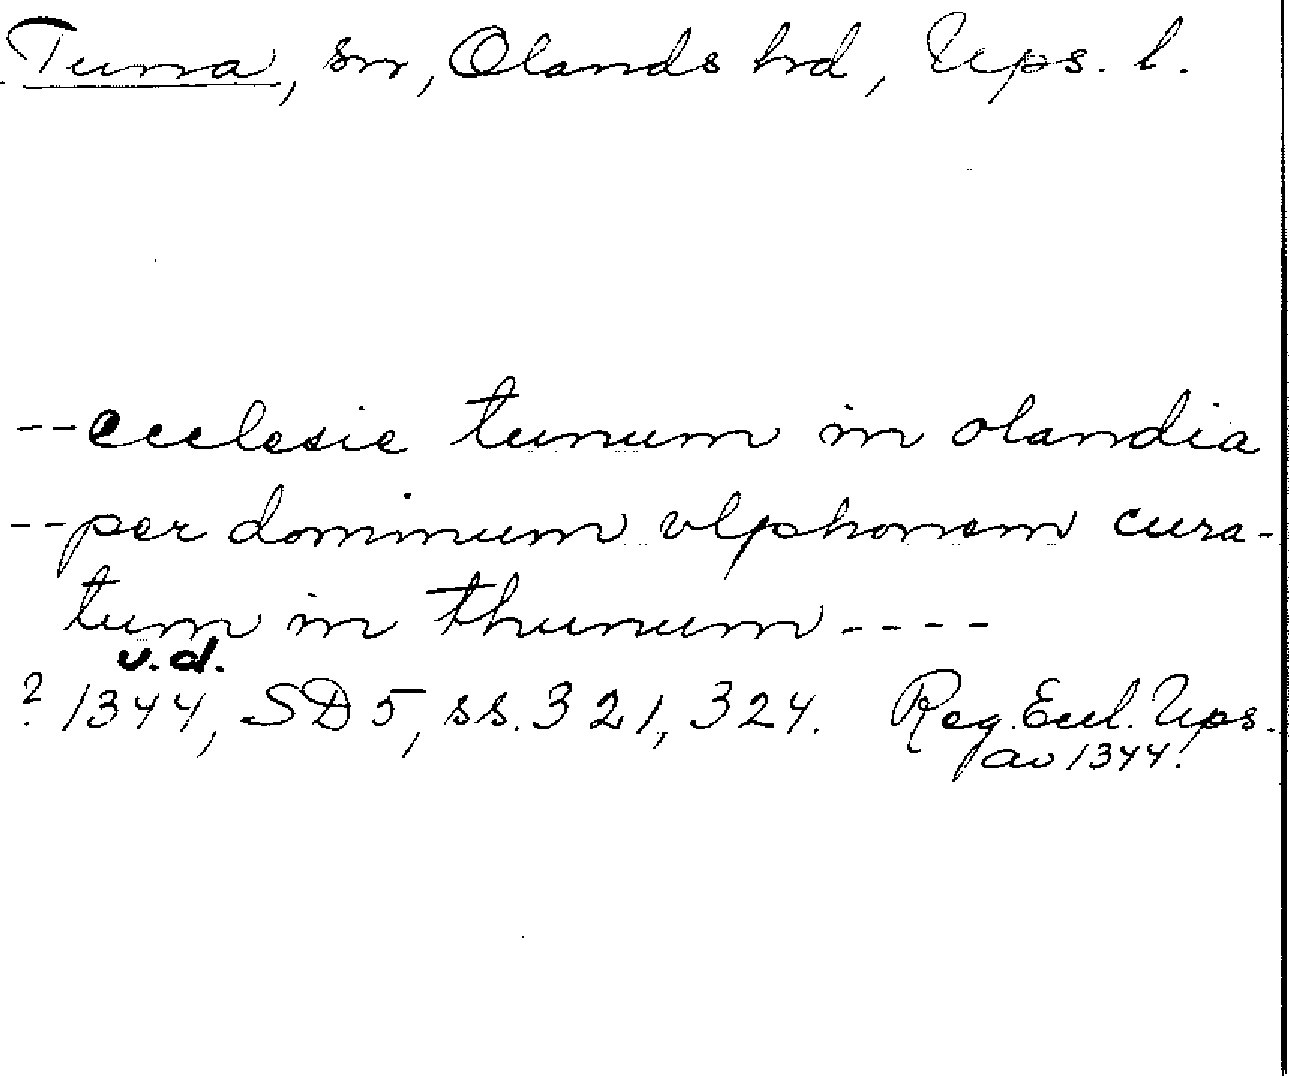 Tuna, sn, Olands hd, Ups. l.
--ecclesie tunum in olandia
--per dominum vlphonem cura-
tum in thunum----
u.d.
? 1344, SD 5, ss. 321, 324. Reg. Eccl. Ups.
av 1344.